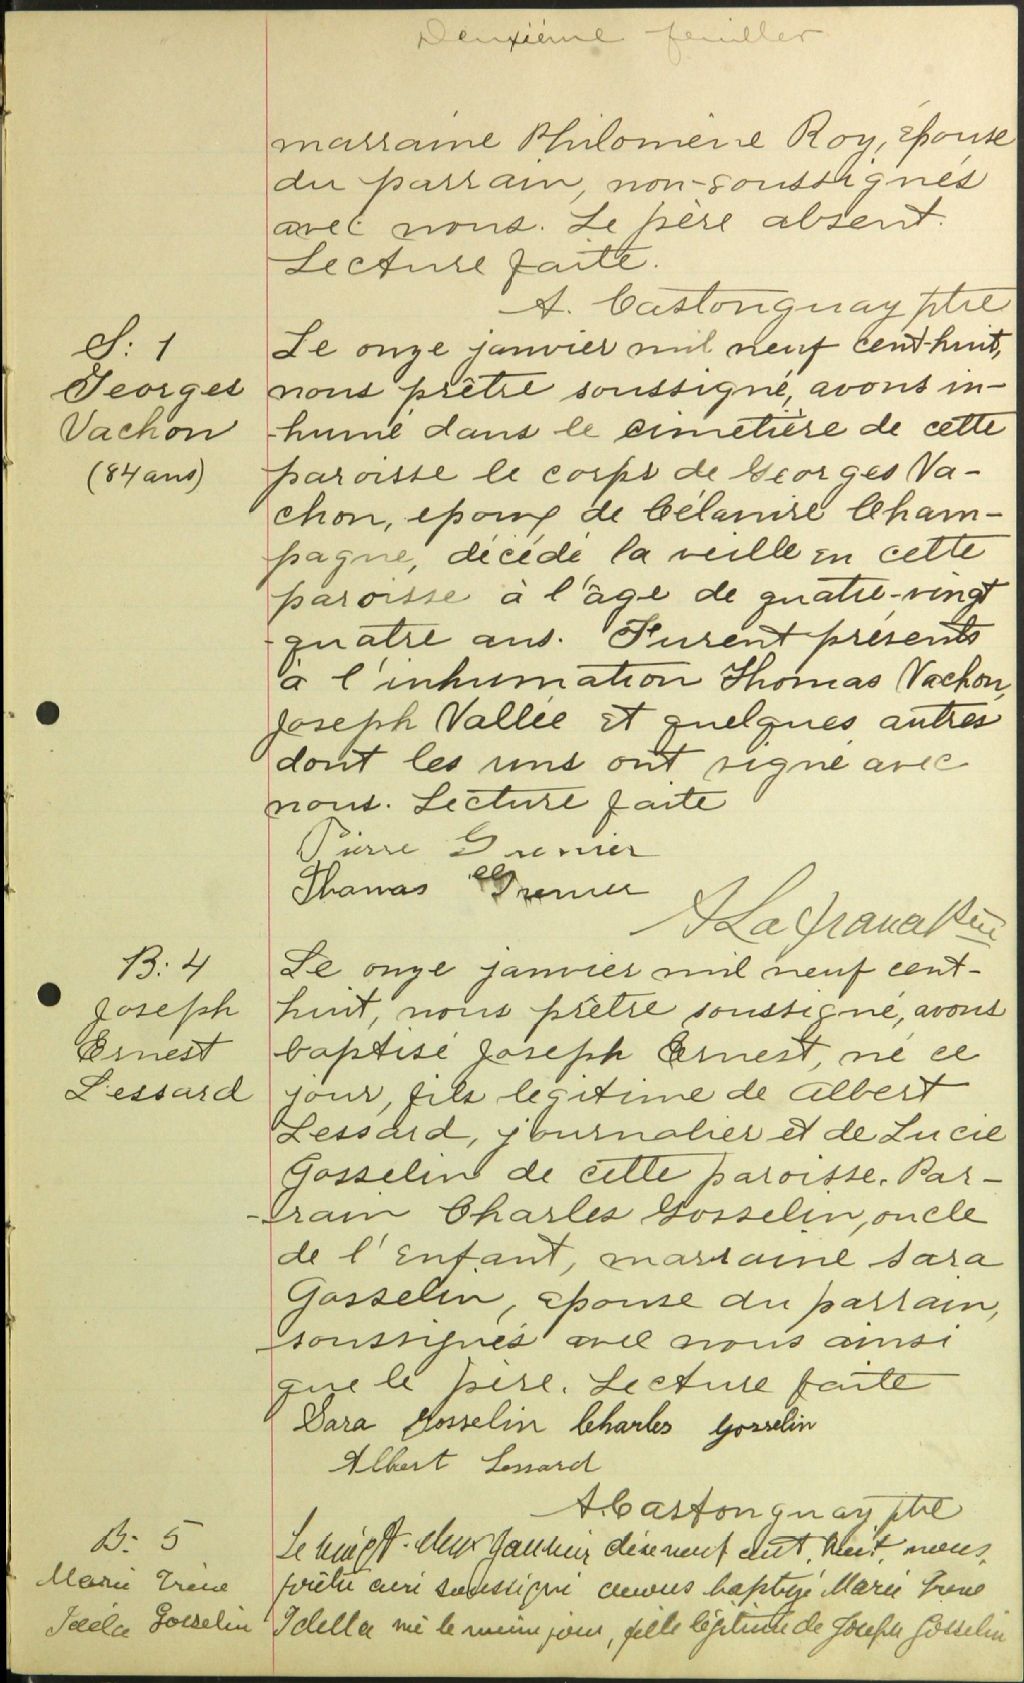 Deuxième feuillet
marraine Philomène Roy, épouse
du parrain, non-soussignés
avec nous. Le père absent.
Lecture faite.
A. Castonguay ptre
S: 1
Georges
Vachon
(84 ans)
Le onze janvier mil neuf cent-huit,
nous prêtre soussigné, avons in-
-humé dans le cimetière de cette
paroisse le corps de Georges Va-
chon, epoux de Célanire Cham-
pagne, décédé la veille en cette
paroisse à l'âge de quatre-vingt
-quatre ans. Furent présents
à l'inhumation Thomas Vachon,
Joseph Vallée et quelques autres
dont les uns ont signé avec
nous. Lecture faite
Pierre Grenier
Thomas Grenier
B: 4
Joseph
Ernest
Lessard
Le onze janvier mil neuf cent-
huit, nous prêtre soussigné, avons
baptisé Joseph Ernest, né ce
jour, fils legitime de Albert
Lessard, journalier et de Lucie
Gosselin de cette paroisse. Par-
-rain Charles Gosselin, oncle
de l'enfant, marraine Sara
Gosselin, épouse du parrain,
soussignés avec nous ainsi
que le père. Lecture faite
Sara Gosselin Charles Gosselin
Albert Lessard
A. Castonguay ptre
B: 5
Marie Irène
Idella Gosselin
Le vingt-deux Janvier dix neuf cent huit, nous,
prêtre curé soussigné avons baptizé Marie Irene
Idella né le même jour, fille légitime de Joseph Gosselin